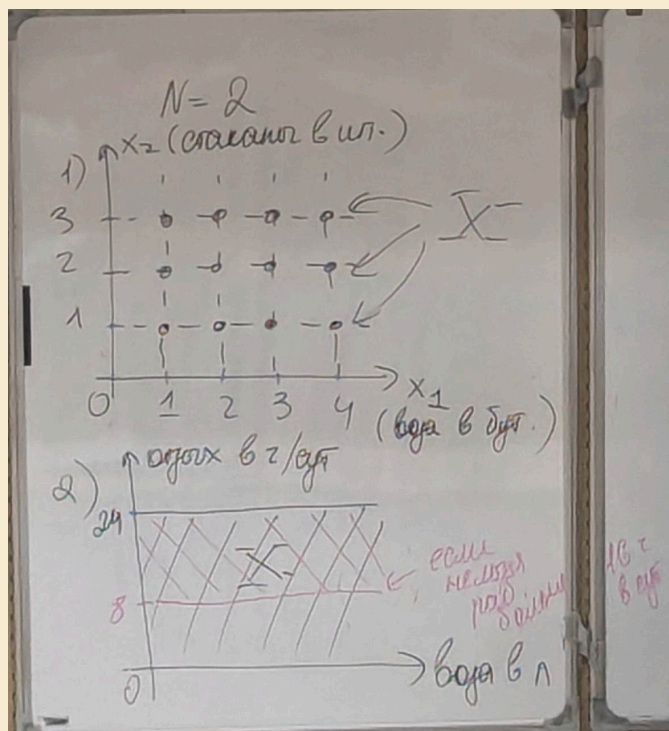 N = 2
x2 (стаканы в шт.)
1)
3
2
1
X
0 1 2 3 4
x1
(вода в бут.)
2)
отдых в ч/сут
24
X
если
нельзя
раб
больше
16 ч
в сут
8
0
вода в л